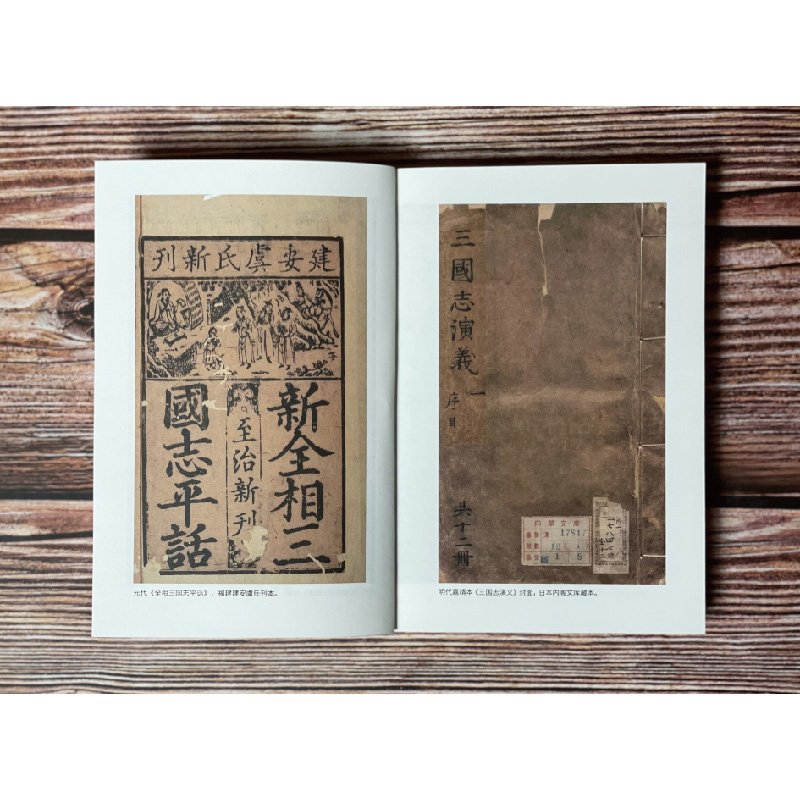 建安虞氏新刊
新全相三
至治新刊
國志平話
元代《全相三国志平话》，福建建安虞氏刊本。
三國志演義 一
序目
共十二冊
內閣文庫
17817
明代嘉靖本《三国志演义》封面，日本内阁文库藏本。